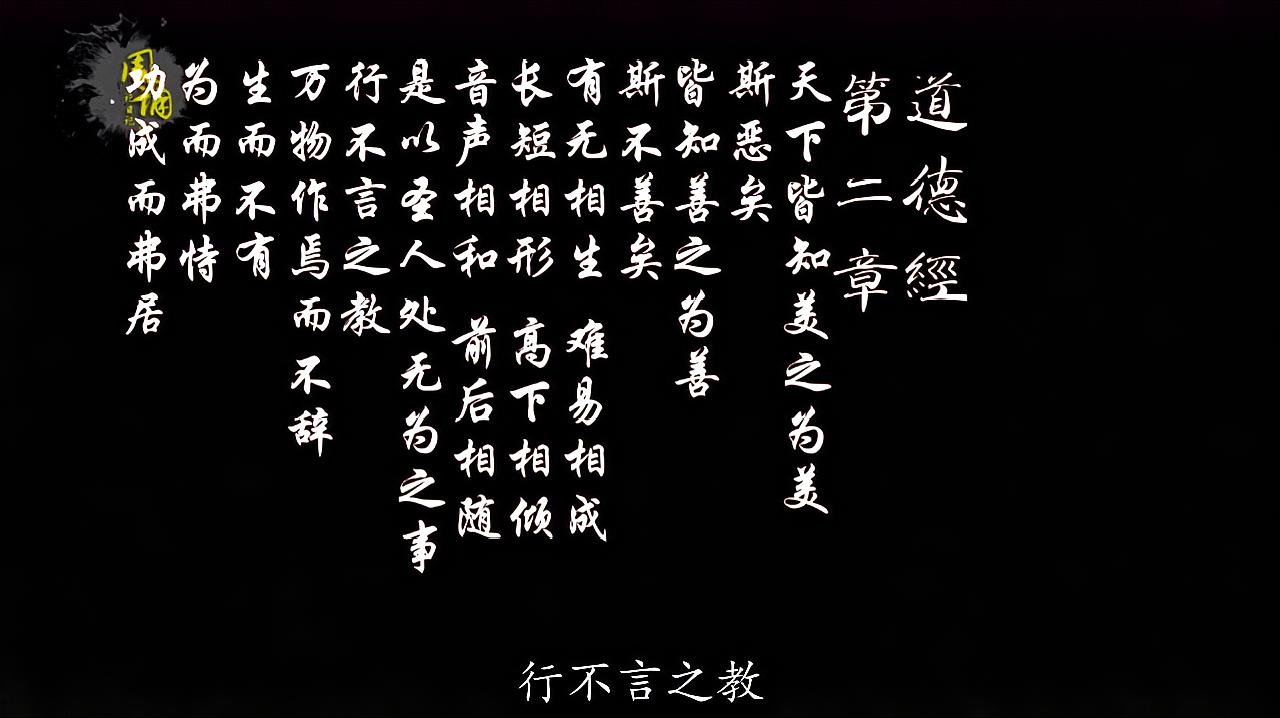 道德經
第二章
天下皆知美之为美
斯恶矣
皆知善之为善
斯不善矣
有无相生 难易相成
长短相形 高下相倾
音声相和 前后相随
是以圣人处无为之事
行不言之教
万物作焉而不辞
生而不有
为而弗恃
功成而弗居
行不言之教